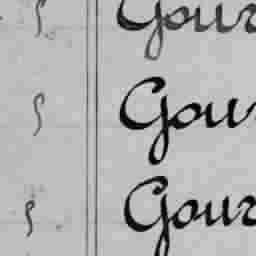 Gour
Gour
Gour